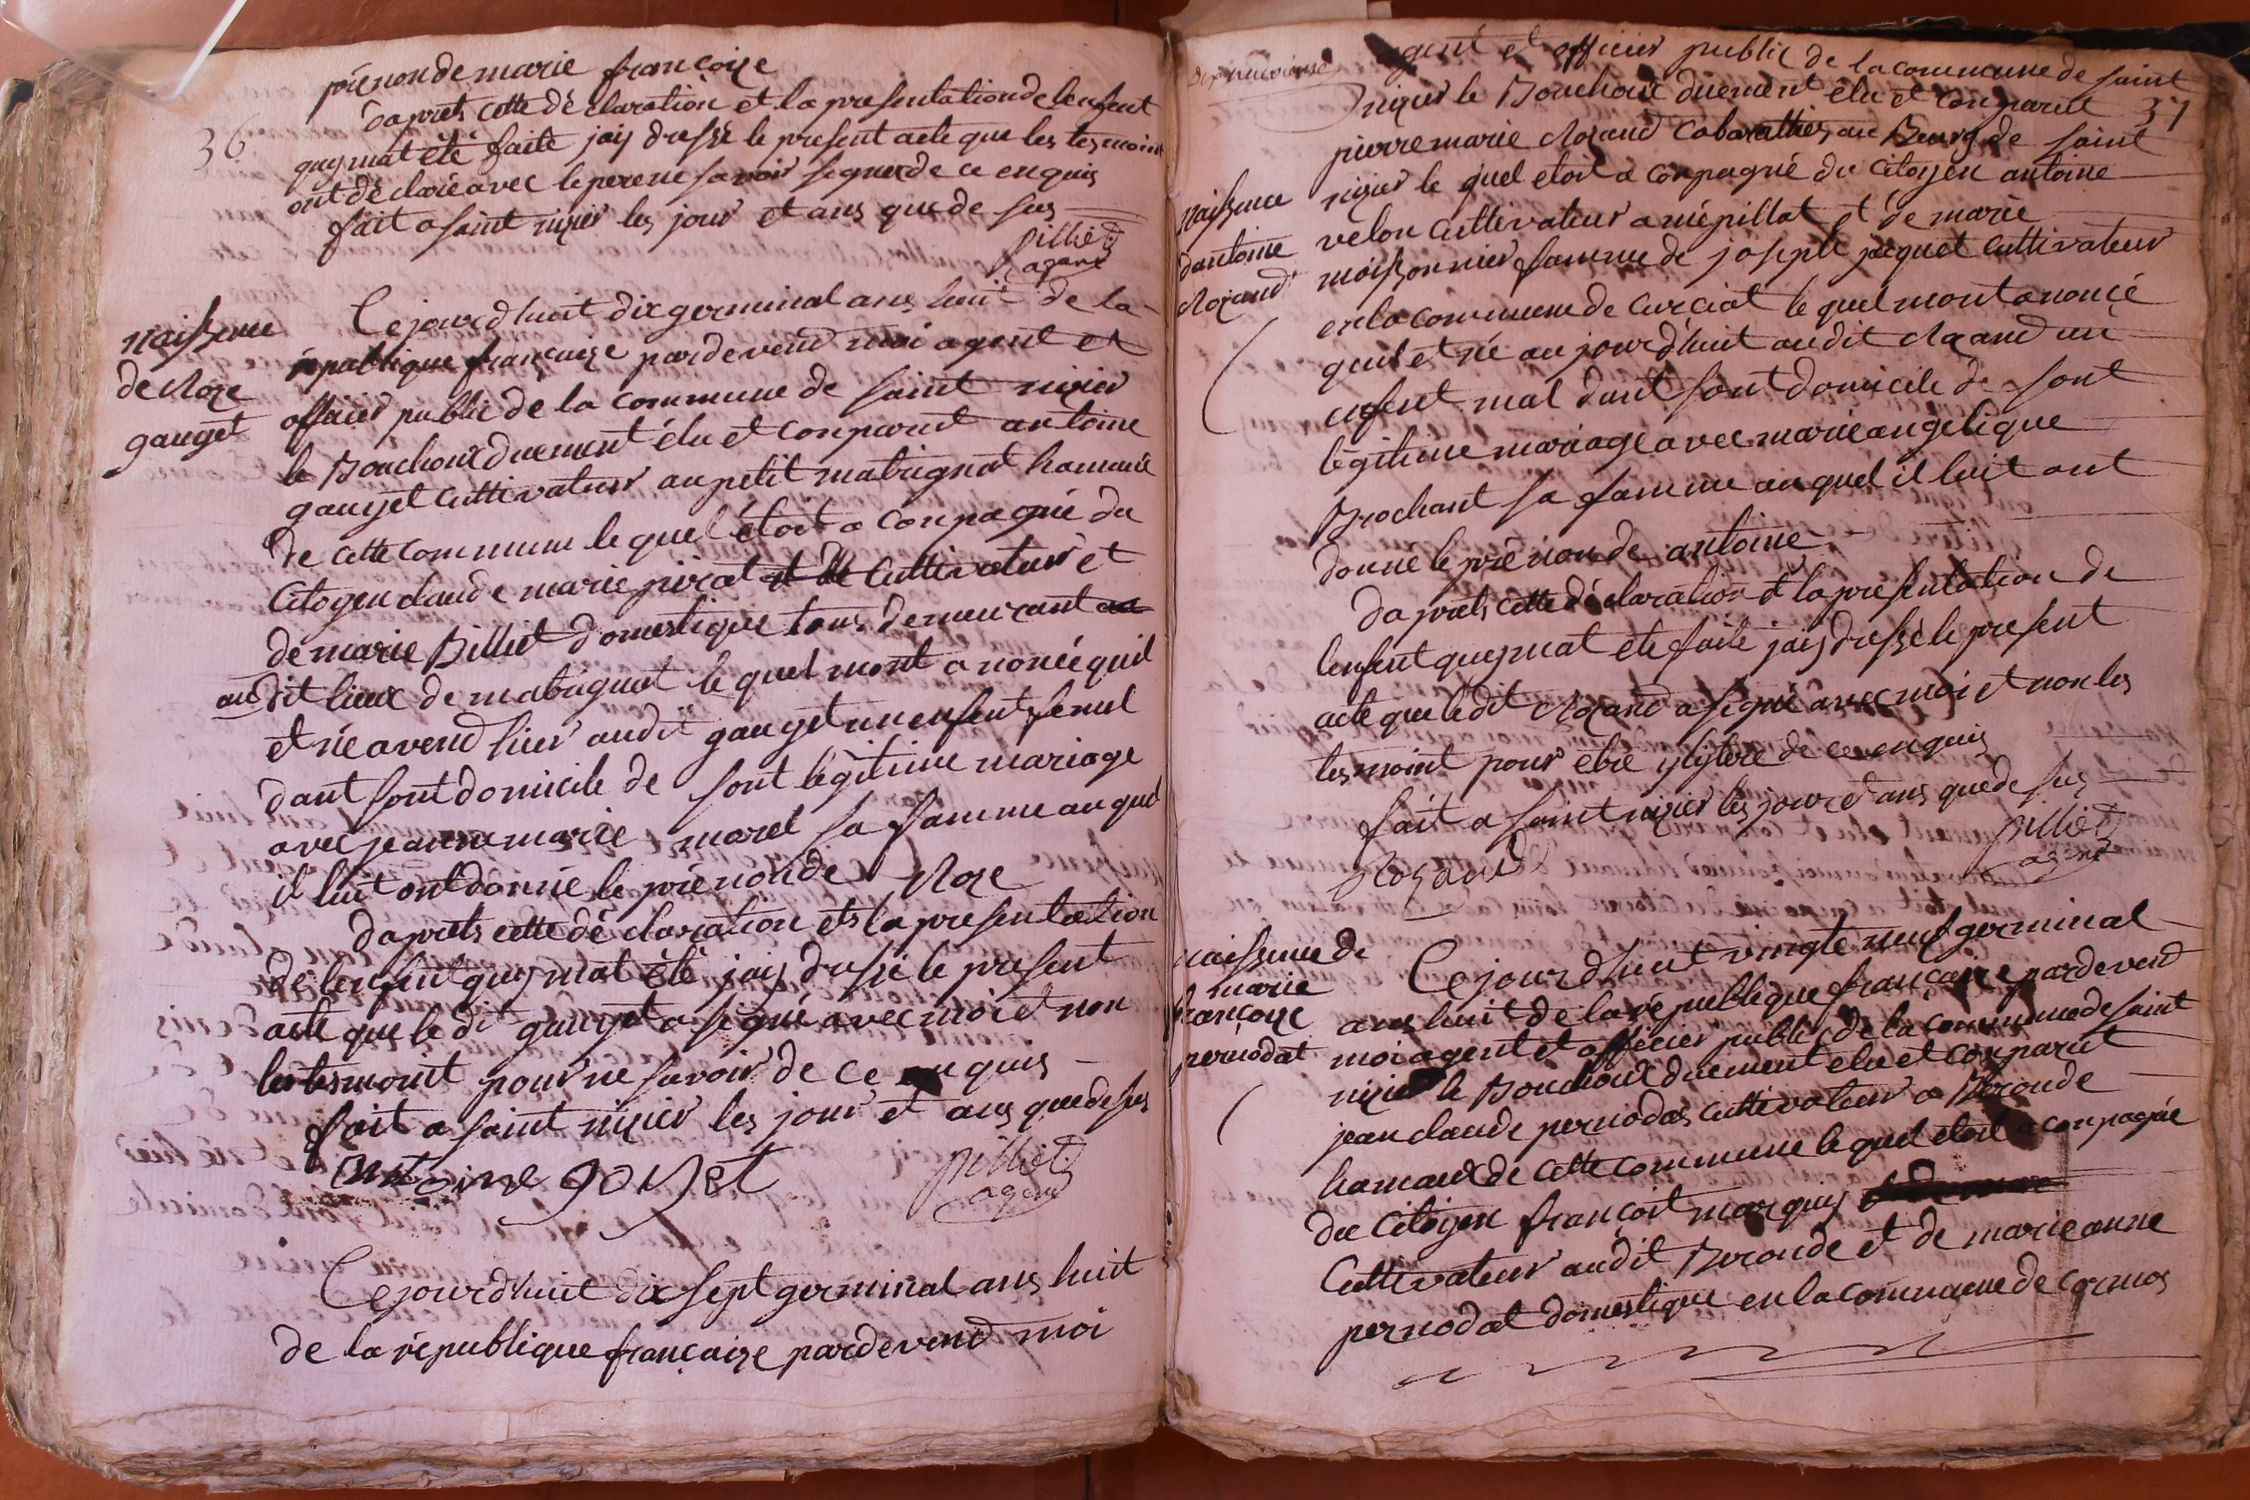 36
prénon de marie françoize
daprets cette dé claration et la presentation de lenfent
quy mat été faite jaiy dressé le present acte que les tesmoint
ont dé claré avec le pere ne savoir signer de ce enquis
fait a saint nizier les jour et ans que de sus
pilliet
agent
naissence
de Roze
gauget
Cejourdhuit dix germinal ans huit de la
république françaize pardevend moi agent et
officier public de la commune de saint nizier
le Bouchoux duement élu et conparut antoine
gauget cultivateur au petit matrignat hamaux
de cette commune le quel étoit a conpagné du
Citoyen claude marie pirat et de Cultivateur et
de marie Billiet domestique tous demeurant au
audit lieux de matrignat le quel mont a noncé quil
et né avend hier audit gauget un enfent femel
dant sont domicile de sont légitime mariage
avec jeanne marie morel sa famme au quel
il luit ont donné le prénon de Roze
daprets cette dé claration et la presentation
de lenfent quy mat été jaiy dressé le present
acte que le dit gauget a signé avec moi et non
les tesmoint pour ne savoir de ce enquis
fait a saint nizier les jour et ans que de sus
antoine gouget
pilliet
agent
Cejourdhuit dix sept germinal ans huit
de la république françaize pardevend moi
37
agent et officier public de la commune de saint
nizier le Bouchoux duement élu et conparut
pierre marie Rozand Cabarattier au Bourg de saint
nizier le quel etoit a conpagné du Citoyen antoine
velon cultivateur a mépillat et de marie
moissonnier famme de joseph jacquet Cultivateur
en la commune de Curciat le quel mont a noncé
quil et né au jourdhuit audit Rozand un
enfent mal dant sont domicile de sont
légitime mariage avec marie angelique
Brochant sa famme au quel il luit ont
donné le prénon de antoine
naissence
dantoine
Rozand
daprets cette dé claration et la presentation de
lenfent quy mat ete faite jaiy dressé le present
acte que le dit Rozand a signé avec moi et non les
tesmoint pour etre ylytere de ce enquis
fait a saint nizier les jour et ans que de sus
Rozand
pilliet
agent
naissence de
marie
françoize
pernodat
Cejourdhuit vingte neuf germinal
ans huit de la république françaize pardevend
moi agent et officier public de la commune de saint
nizier le Bouchoux duement elu et conparut
jean claude pernodat cultivateur a Bronde
hamaux de cette commune le quel etoit a conpagné
du Citoyen françoit marquis
Cultivateur audit Bronde et de marie anne
pernodat domestique en la commune de cormos